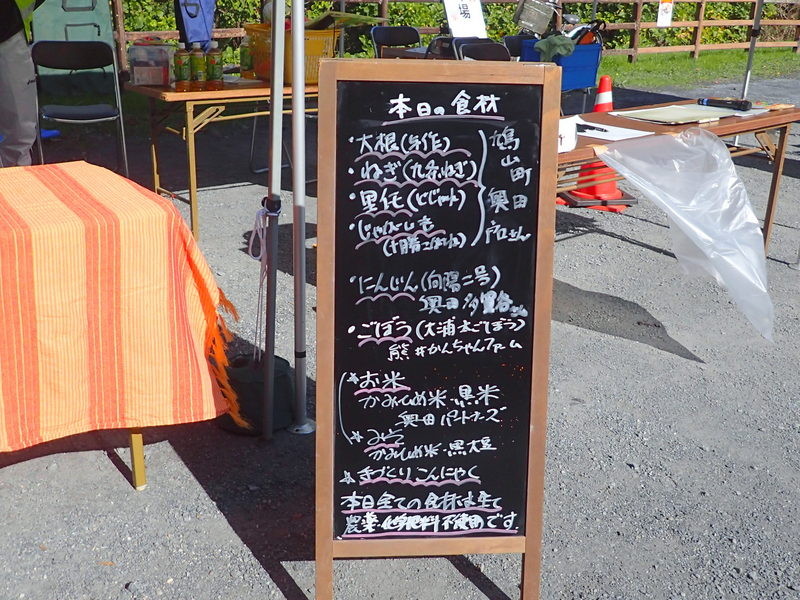 本日の食材
・大根(与作)
・ねぎ(九条ねぎ)
・里芋(どじゃれ)
・じゃがいも
(十勝こがね)
鳩山町
奥田
戸口さん
・にんじん(向陽二号)
奥田
・ごぼう(大浦太ごぼう)
熊井かんちゃんファーム
☆お米
かみひめ米・黒米
奥田パートナーズ
☆みそ
かみひめ米・黒大豆
☆手づくりこんにゃく
本日全ての食材は全て
農薬・化学肥料不使用です。
場